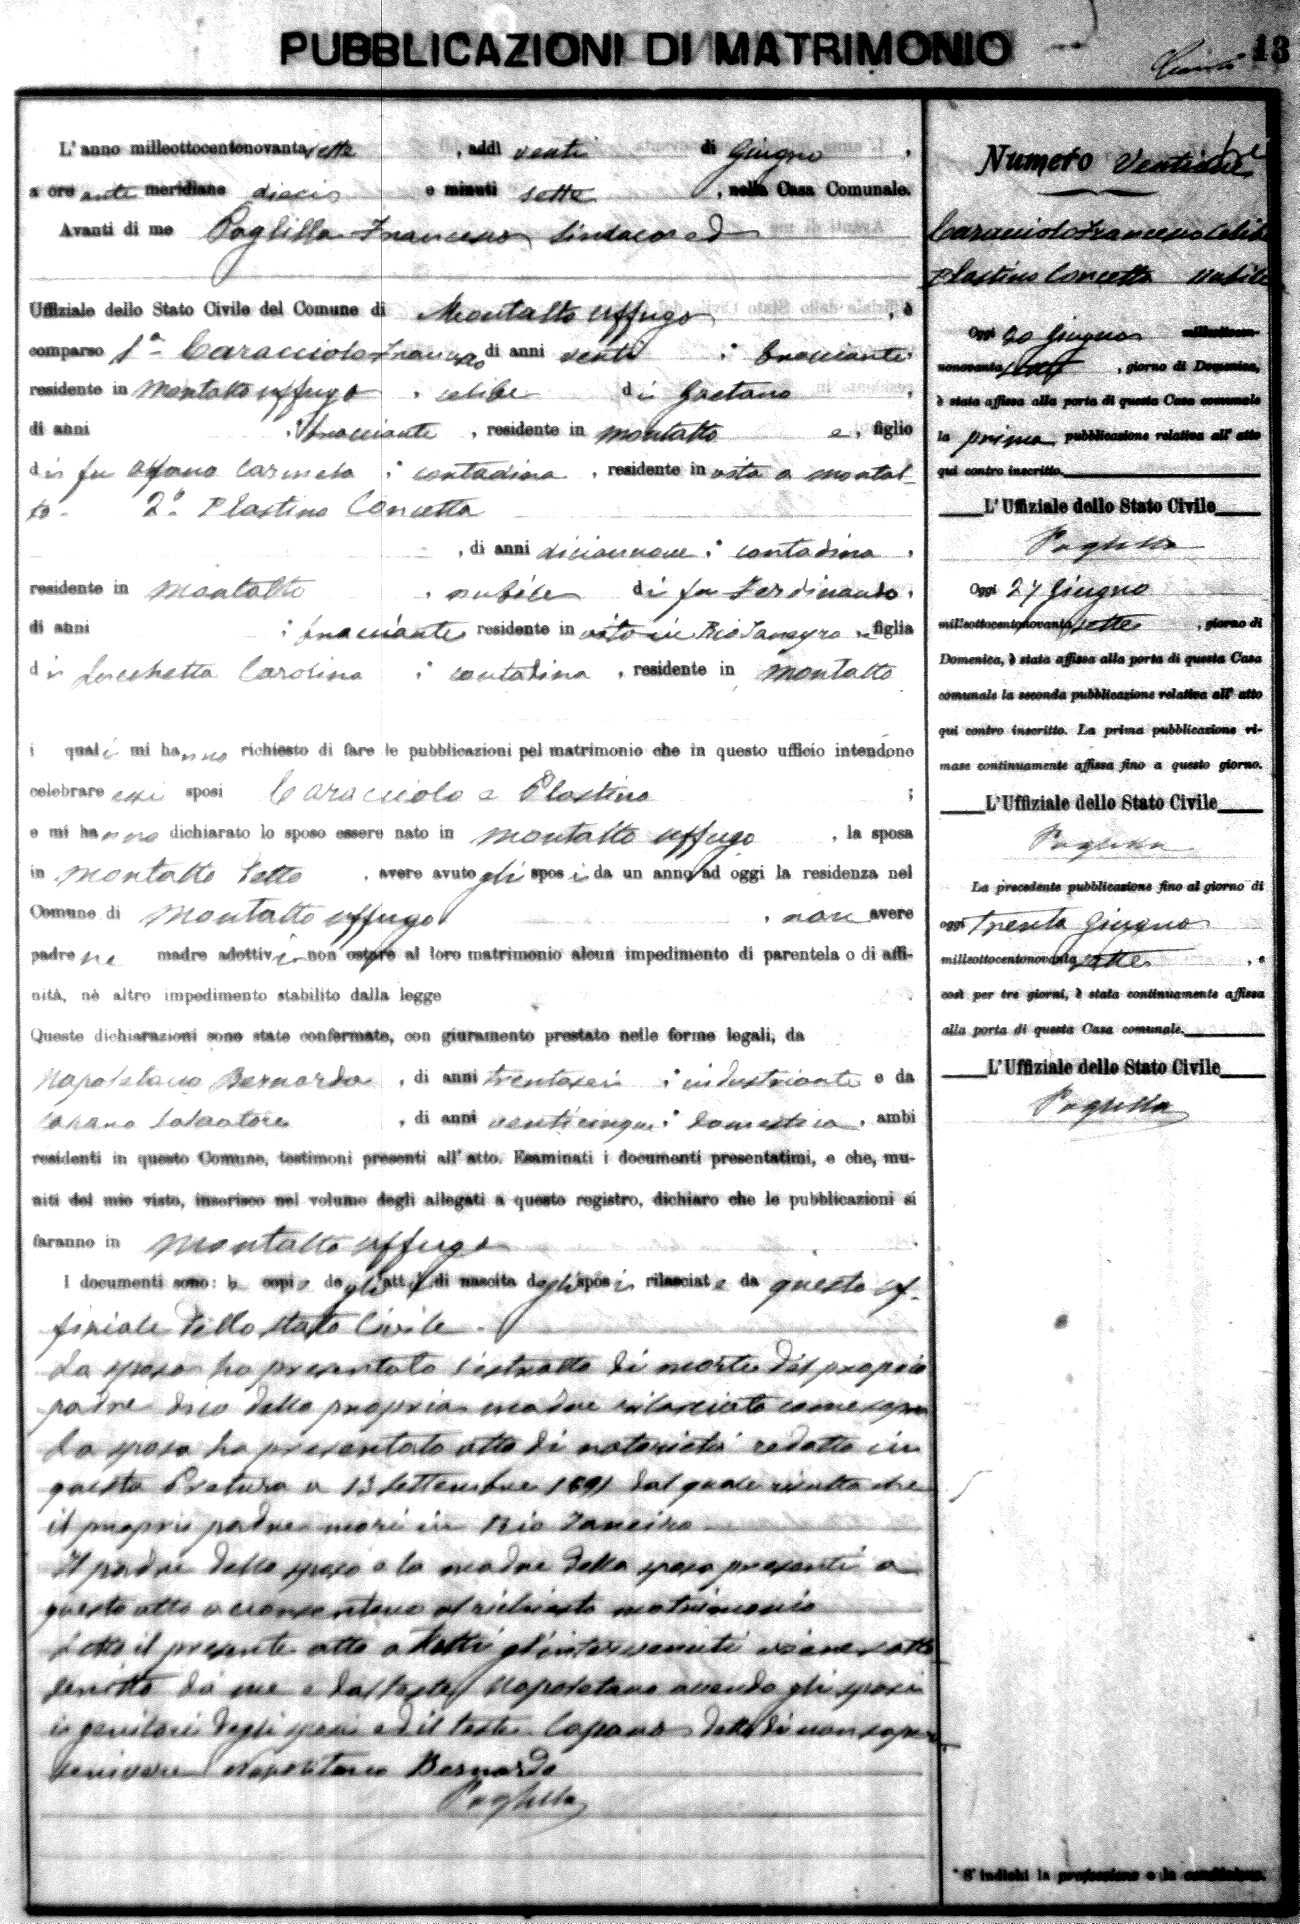 PUBBLICAZIONI DI MATRIMONIO
13
L' anno milleottocentonovantasette, addì venti di Giugno,
a ore ante meridiane dieci e minuti sette, nella Casa Comunale.
Avanti di me Paglilla Francesco Sindaco ed
Uffiziale dello Stato Civile del Comune di Montalto Uffugo, è
comparso 1° Caracciolo Francesco di anni venti : bracciante
residente in Montalto Uffugo, celibe di Gaetano,
di anni : bracciante, residente in Montalto e, figlio
di fu Alfano Carmela : contadina, residente in vita a Montal-
to. 2° Plastino Concetta
, di anni diciannove : contadina,
residente in Montalto, nubile di fu Ferdinando,
di anni : bracciante residente in vita in Rio Janeyro e figlia
di Lucchetta Carolina : contadina, residente in Montalto
i quali mi hanno richiesto di fare le pubblicazioni pel matrimonio che in questo ufficio intendono
celebrare essi sposi Caracciolo e Plastino ;
e mi hanno dichiarato lo sposo essere nato in Montalto Uffugo, la sposa
in Montalto detto, avere avuto gli sposi da un anno ad oggi la residenza nel
Comune di Montalto Uffugo, non avere
padre ne madre adottivi non ostare al loro matrimonio alcun impedimento di parentela o di affi-
nità, nè altro impedimento stabilito dalla legge
Queste dichiarazioni sono state confermate, con giuramento prestato nelle forme legali, da
Napoletano Bernardo, di anni trentasei : industriante e da
Capano Salvatore, di anni venticinque : domestico, ambi
residenti in questo Comune, testimoni presenti all' atto. Esaminati i documenti presentatimi, e che, mu-
niti del mio visto, inserisco nel volume degli allegati a questo registro, dichiaro che le pubblicazioni si
faranno in Montalto Uffugo
I documenti sono: le copie degli atti di nascita degli sposi rilasciate da questo uf-
fiziale dello stato Civile.
Lo sposo ha presentato l'estratto di morte del proprio
padre dico della propria madre rilasciato come sopra
La sposa ha presentato atto di notorietà redatto in
questa Pretura a 13 Settembre 1891 dal quale risulta che
il proprio padre morì in Rio Janeiro
Il padre dello sposo e la madre della sposa presenti a
questo atto acconsentono al richiesto matrimonio
Letto il presente atto a tutti gl'intervenuti viene sotto
scritto da me e dal teste Napoletano avendo gli sposi
i genitori degli sposi ed il teste Capano detto di non saper
scrivere Napoletano Bernardo
Paglilla
Numero Ventitre
Caracciolo Francesco celibe
Plastino Concetta nubile
Oggi 20 Giugno milleottocen-
nonovantasette, giorno di Domenica,
è stata affissa alla porta di questa Casa comunale
la prima pubblicazione relativa all' atto
qui contro inscritto.
L'Uffiziale dello Stato Civile
Paglilla
Oggi 27 Giugno
milleottocentonovantasette, giorno di
Domenica, è stata affissa alla porta di questa Casa
comunale la seconda pubblicazione relativa all' atto
qui contro inscritto. La prima pubblicazione ri-
mase continuamente affissa fino a questo giorno.
L'Uffiziale dello Stato Civile
Paglilla
La precedente pubblicazione fino al giorno di
oggi trenta Giugno
milleottocentonovantasette, e
così per tre giorni, è stata continuamente affissa
alla porta di questa Casa comunale.
L'Uffiziale dello Stato Civile
Paglilla
* S' indichi la professione o la condizione.